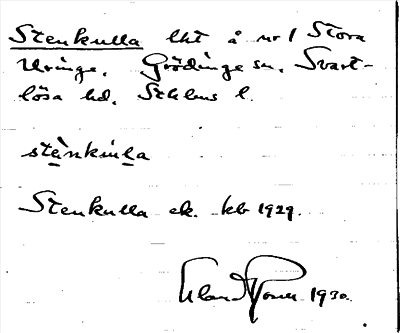 Stenkulla lht å nr 1 Stora
Uringe, Grödinge sn, Svart-
lösa hd, Sthlms l.
stènkùla
Stenkulla ek. kb 1929.
Erland Rosell 1930.